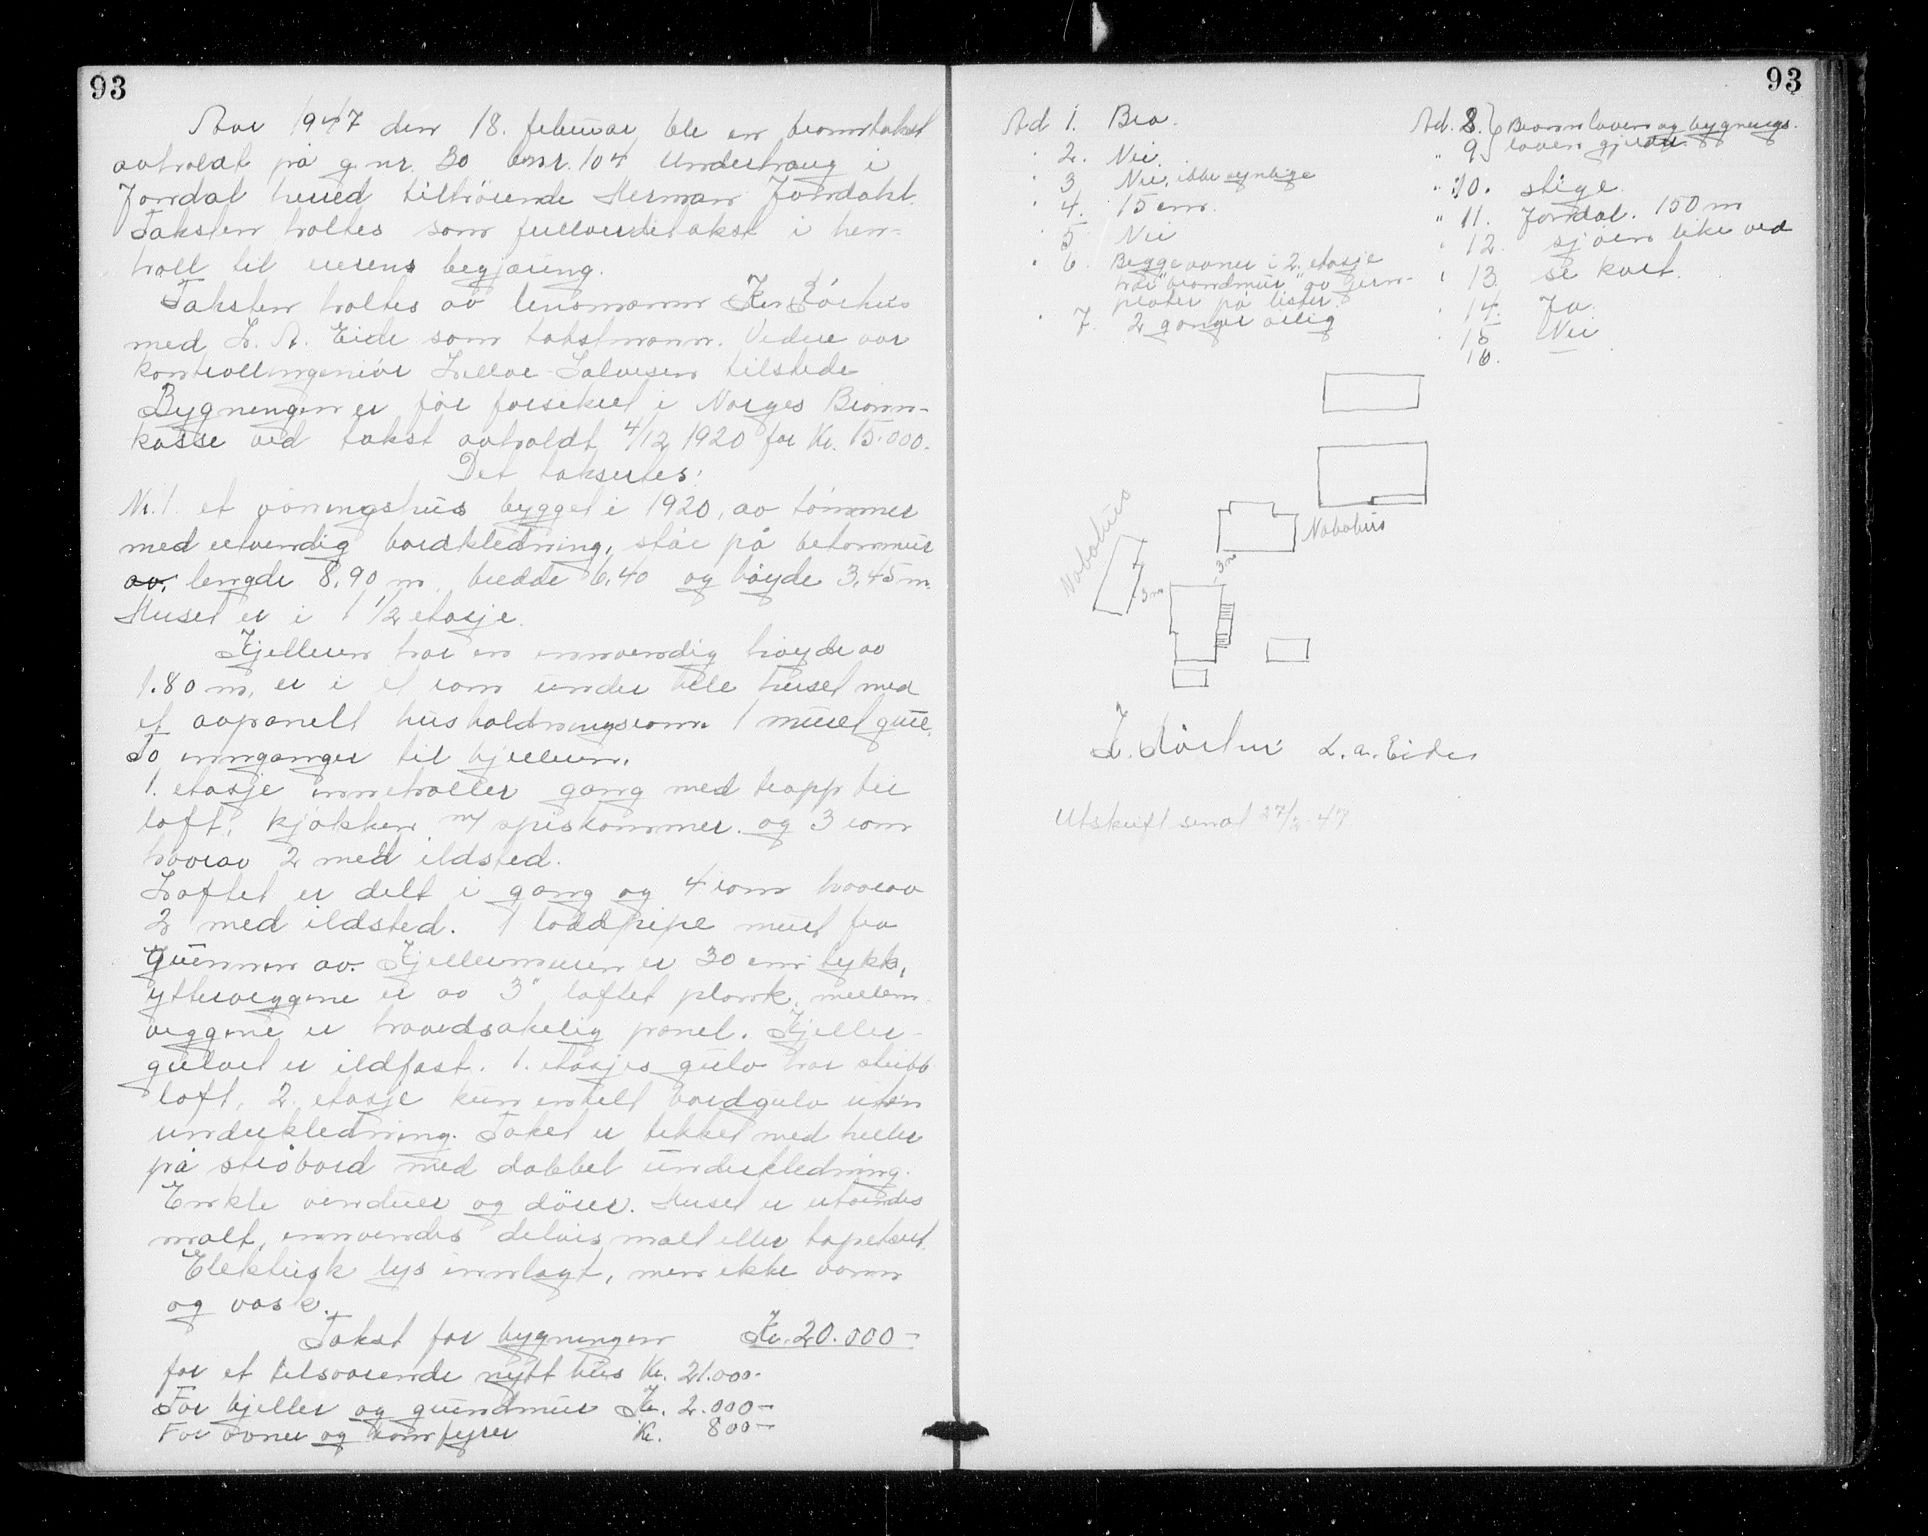 93
Aar 1947 den 18. februar ble en branntakst
avholdt på g.nr. 30 bnr. 104 Underhaug i
Jondal herred tilhørende Herman Jondahl.
Taksten holtes som fullverditakst i hen-
hold til eierens begjæring.
Taksten holtes av lensmann Kr. Sørhus
med L. A. Eide som takstmann. Videre var
kontrollingeniør Salvesen tilstede
Bygningen er før forsikret i Norges Brann-
kasse ved takst avholdt 4/12 1920 for Kr. 15.000.
Det takseres:
Nr. 1. et våningshus bygget i 1920, av tømmer
med utvendig bordkledning, står på betonmur
av, lengde 8,90 m bredde 6,40 og høyde 3,45 m.
Huset er i 1 1/2 etasje.
Kjelleren har en innvendig høyde av
1.80 m, er i et rom under hele huset med
et avpanelt husholdningsrom 1 muret grue.
To innganger til kjelleren.
1. etasje inneholder gang med trapp til
loft, kjøkken m/ spiskammer og 3 rom
hvorav 2 med ildsted.
Loftet er delt i gang og 4 rom hvorav
2 med ildsted. 1 loddpipe muret fra
grunnen av. Kjellermuren er 30 cm tykk,
ytterveggene er av 3" laftet plank, mellem-
veggene er hovedsakelig panel. Kjeller-
gulvet er ildfast. 1. etasjes gulv har stubb
loft, 2. etasje kun enkelt bordgulv uten
underkledning. Taket er tekket med heller
på strøbord med dobbel underkledning.
Enkle vinduer og dører. Huset er utvendes
malt, innvendes delvis malt eller tapetsert.
Elektrisk lys innlagt, men ikke vann
og vask.
Takst for bygningen Kr. 20.000-
for et tilsvarende nytt hus Kr. 21.000-
For kjeller og grundmur Kr. 2.000-
For ovner og komfyrer Kr. 800-
93
Ad 1. Bra.
" 2. Nei.
" 3 Nei, ikke synlige
" 4. 15 cm.
" 5 Nei
" 6. Begge ovner i 2. etasje
har "brandmur" av jern-
plater på lister.
" 7. 2 ganger årlig
Ad. 8. } Brannloven og bygnings-
" 9 } loven gjelder.
" 10. stige
" 11. Jondal. 150 m
" 12. sjøen like ved
" 13. se kart.
" 14. Ja.
" 15 Nei
16. —
Nabohus
Nabohus
3 m
3 m
K. Sørhus L. A. Eide
Utskrift sendt 27/2-47